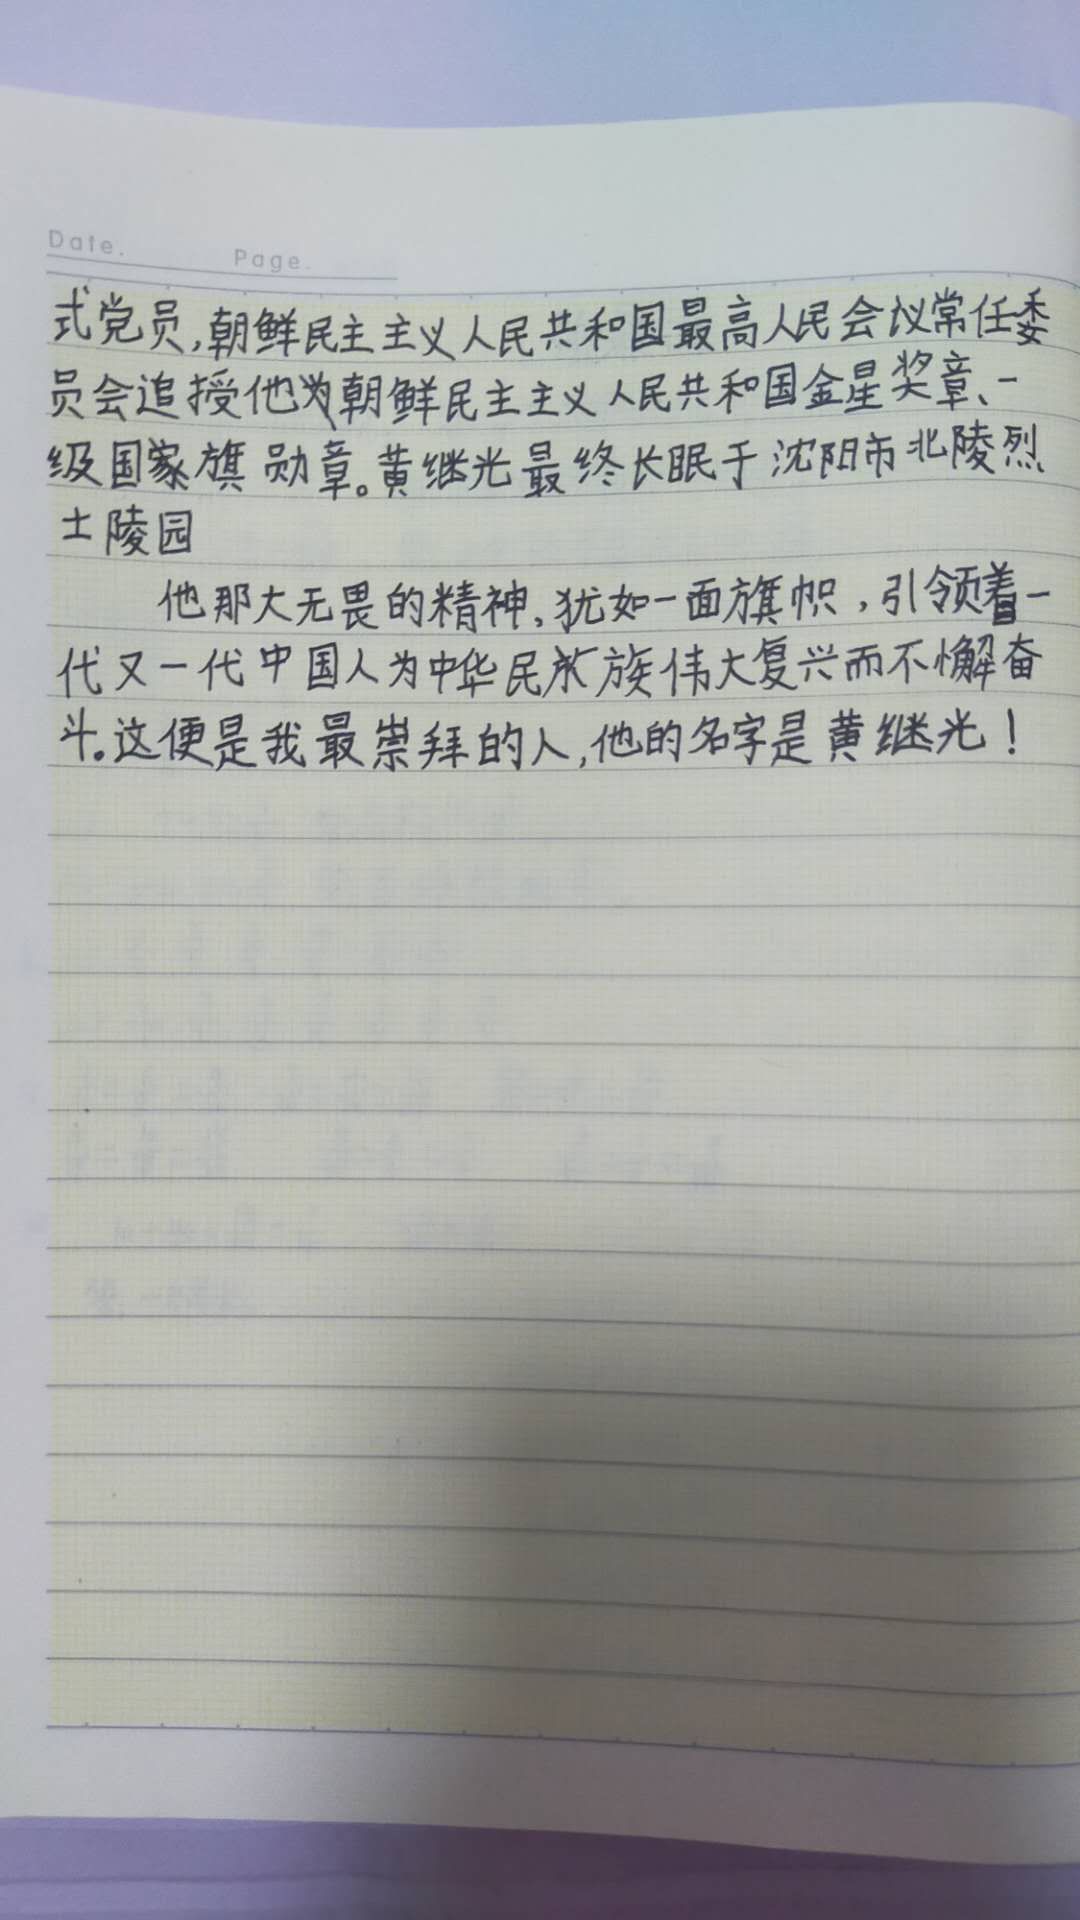 Date. Page.
式党员,朝鲜民主主义人民共和国最高人民会议常任委
员会追授他为朝鲜民主主义人民共和国金星奖章、一
级国家旗勋章。黄继光最终长眠于沈阳市北陵烈
士陵园
他那大无畏的精神,犹如一面旗帜,引领着一
代又一代中国人为中华民族伟大复兴而不懈奋
斗。这便是我最崇拜的人,他的名字是黄继光!